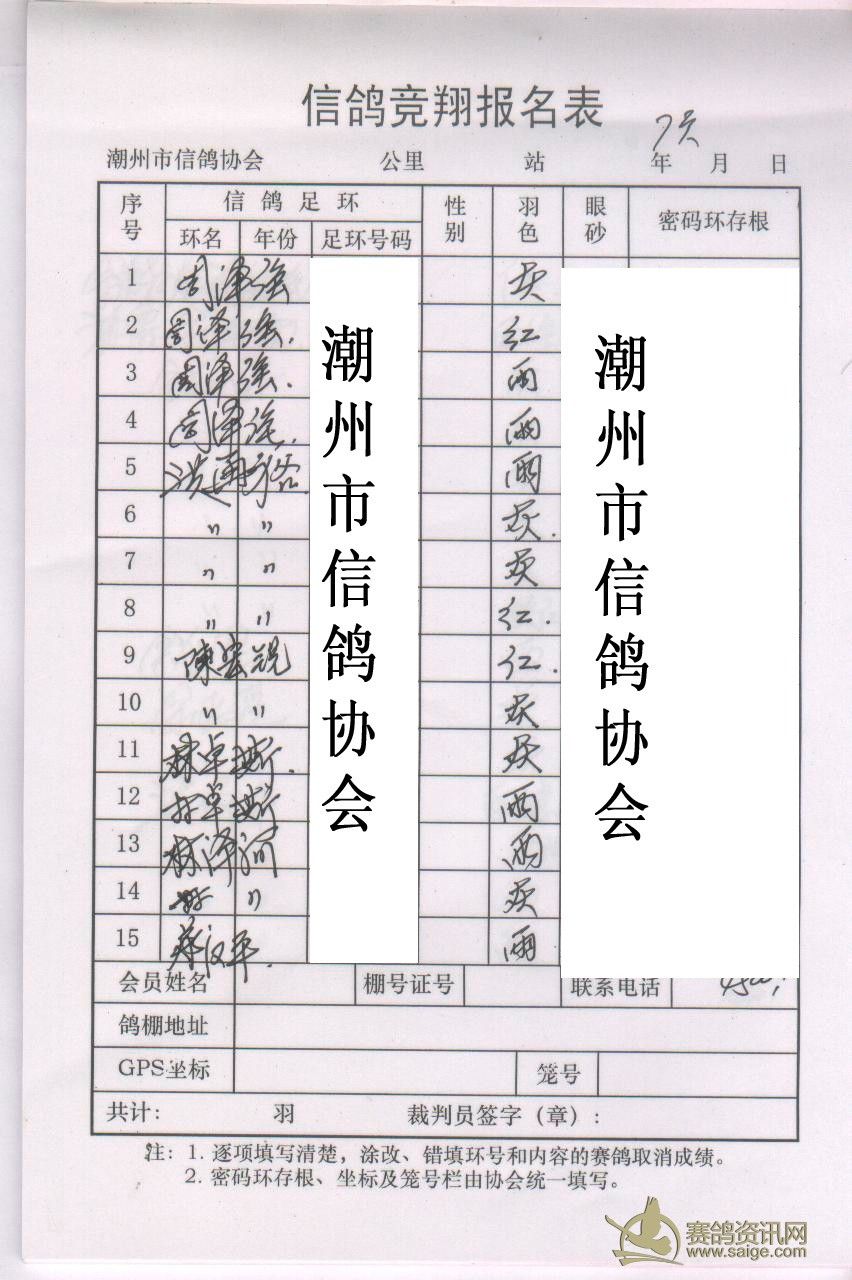 信鸽竞翔报名表
潮州市信鸽协会 公里 站 年 月 日
序号 信鸽足环 性别 羽色 眼砂 密码环存根
环名 年份 足环号码
1 周泽强 灰
2 周泽强. 红
3 周泽强. 雨
4 周泽强. 雨
5 洪 雨
6 〃 〃 灰.
7 〃 〃 灰
8 〃 〃 红.
9 陳宏 红.
10 〃 〃 灰
11 林卓 灰
12 林卓 雨
13 林泽河 雨
14 〃 灰
15 蔡汉平. 雨
潮州市信鸽协会
潮州市信鸽协会
会员姓名 棚号证号 联系电话
鸽棚地址
GPS坐标 笼号
共计: 羽 裁判员签字(章):
注: 1. 逐项填写清楚，涂改、错填环号和内容的赛鸽取消成绩。
2. 密码环存根、坐标及笼号栏由协会统一填写。
赛鸽资讯网
www.saige.com